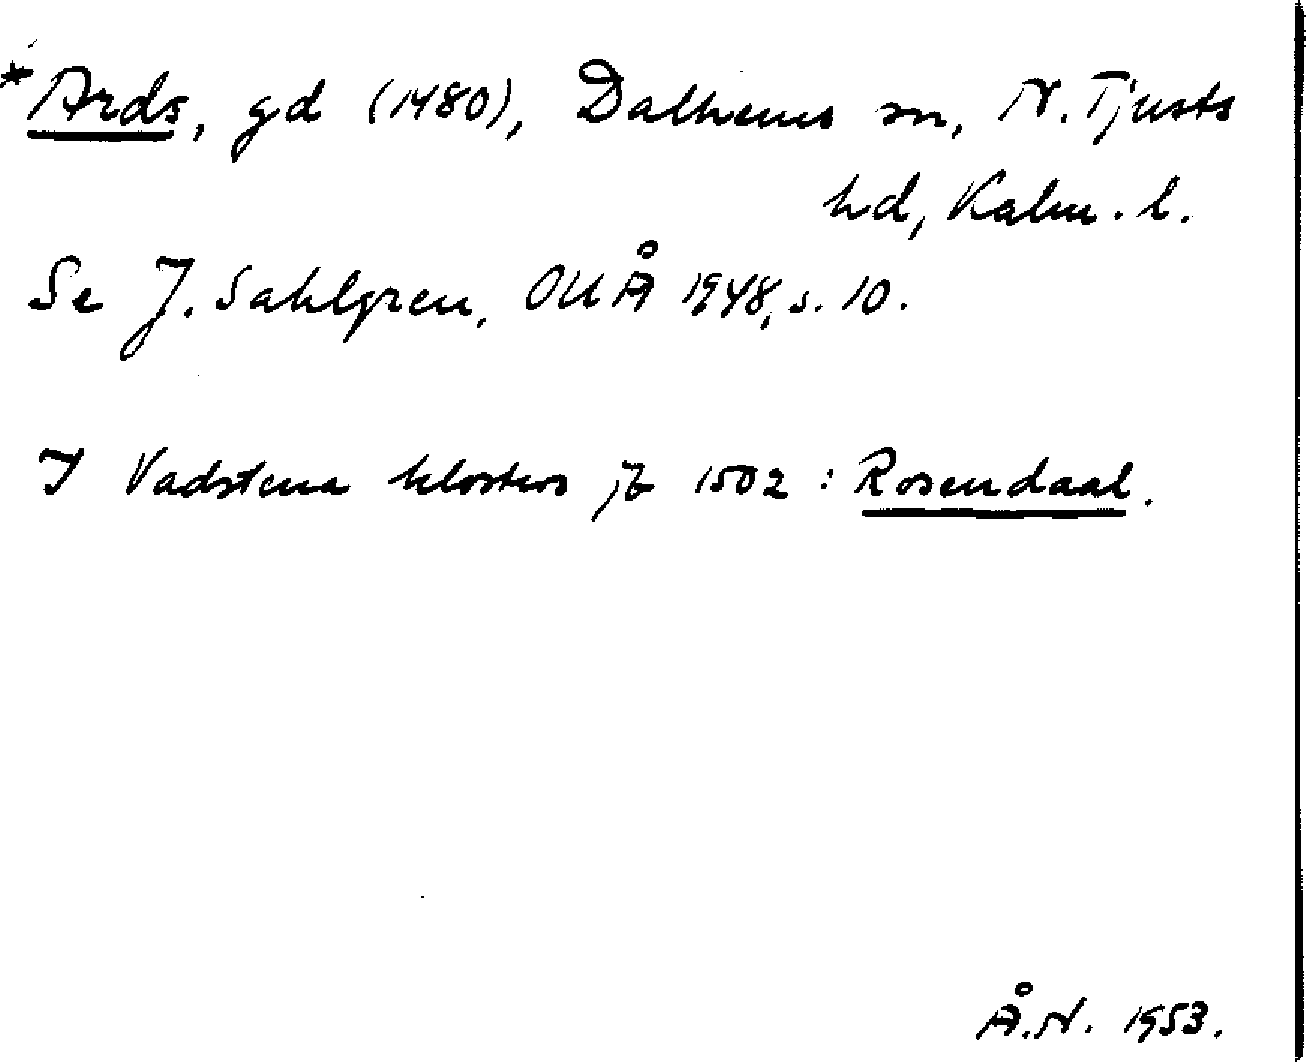 *Ards, gd (1480), Dalhems sn, N. Tjusts
hd, Kalm. l.
Se J. Sahlgren, OUÅ 1948, s. 10.
I Vadstena klosters jb 1502 : Rosendaal.
Å.N. 1953.